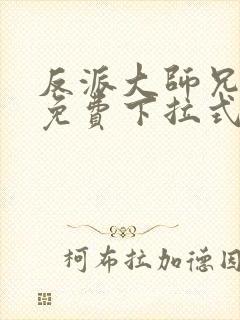 反派大師兄
免費下拉式
柯布拉加德因